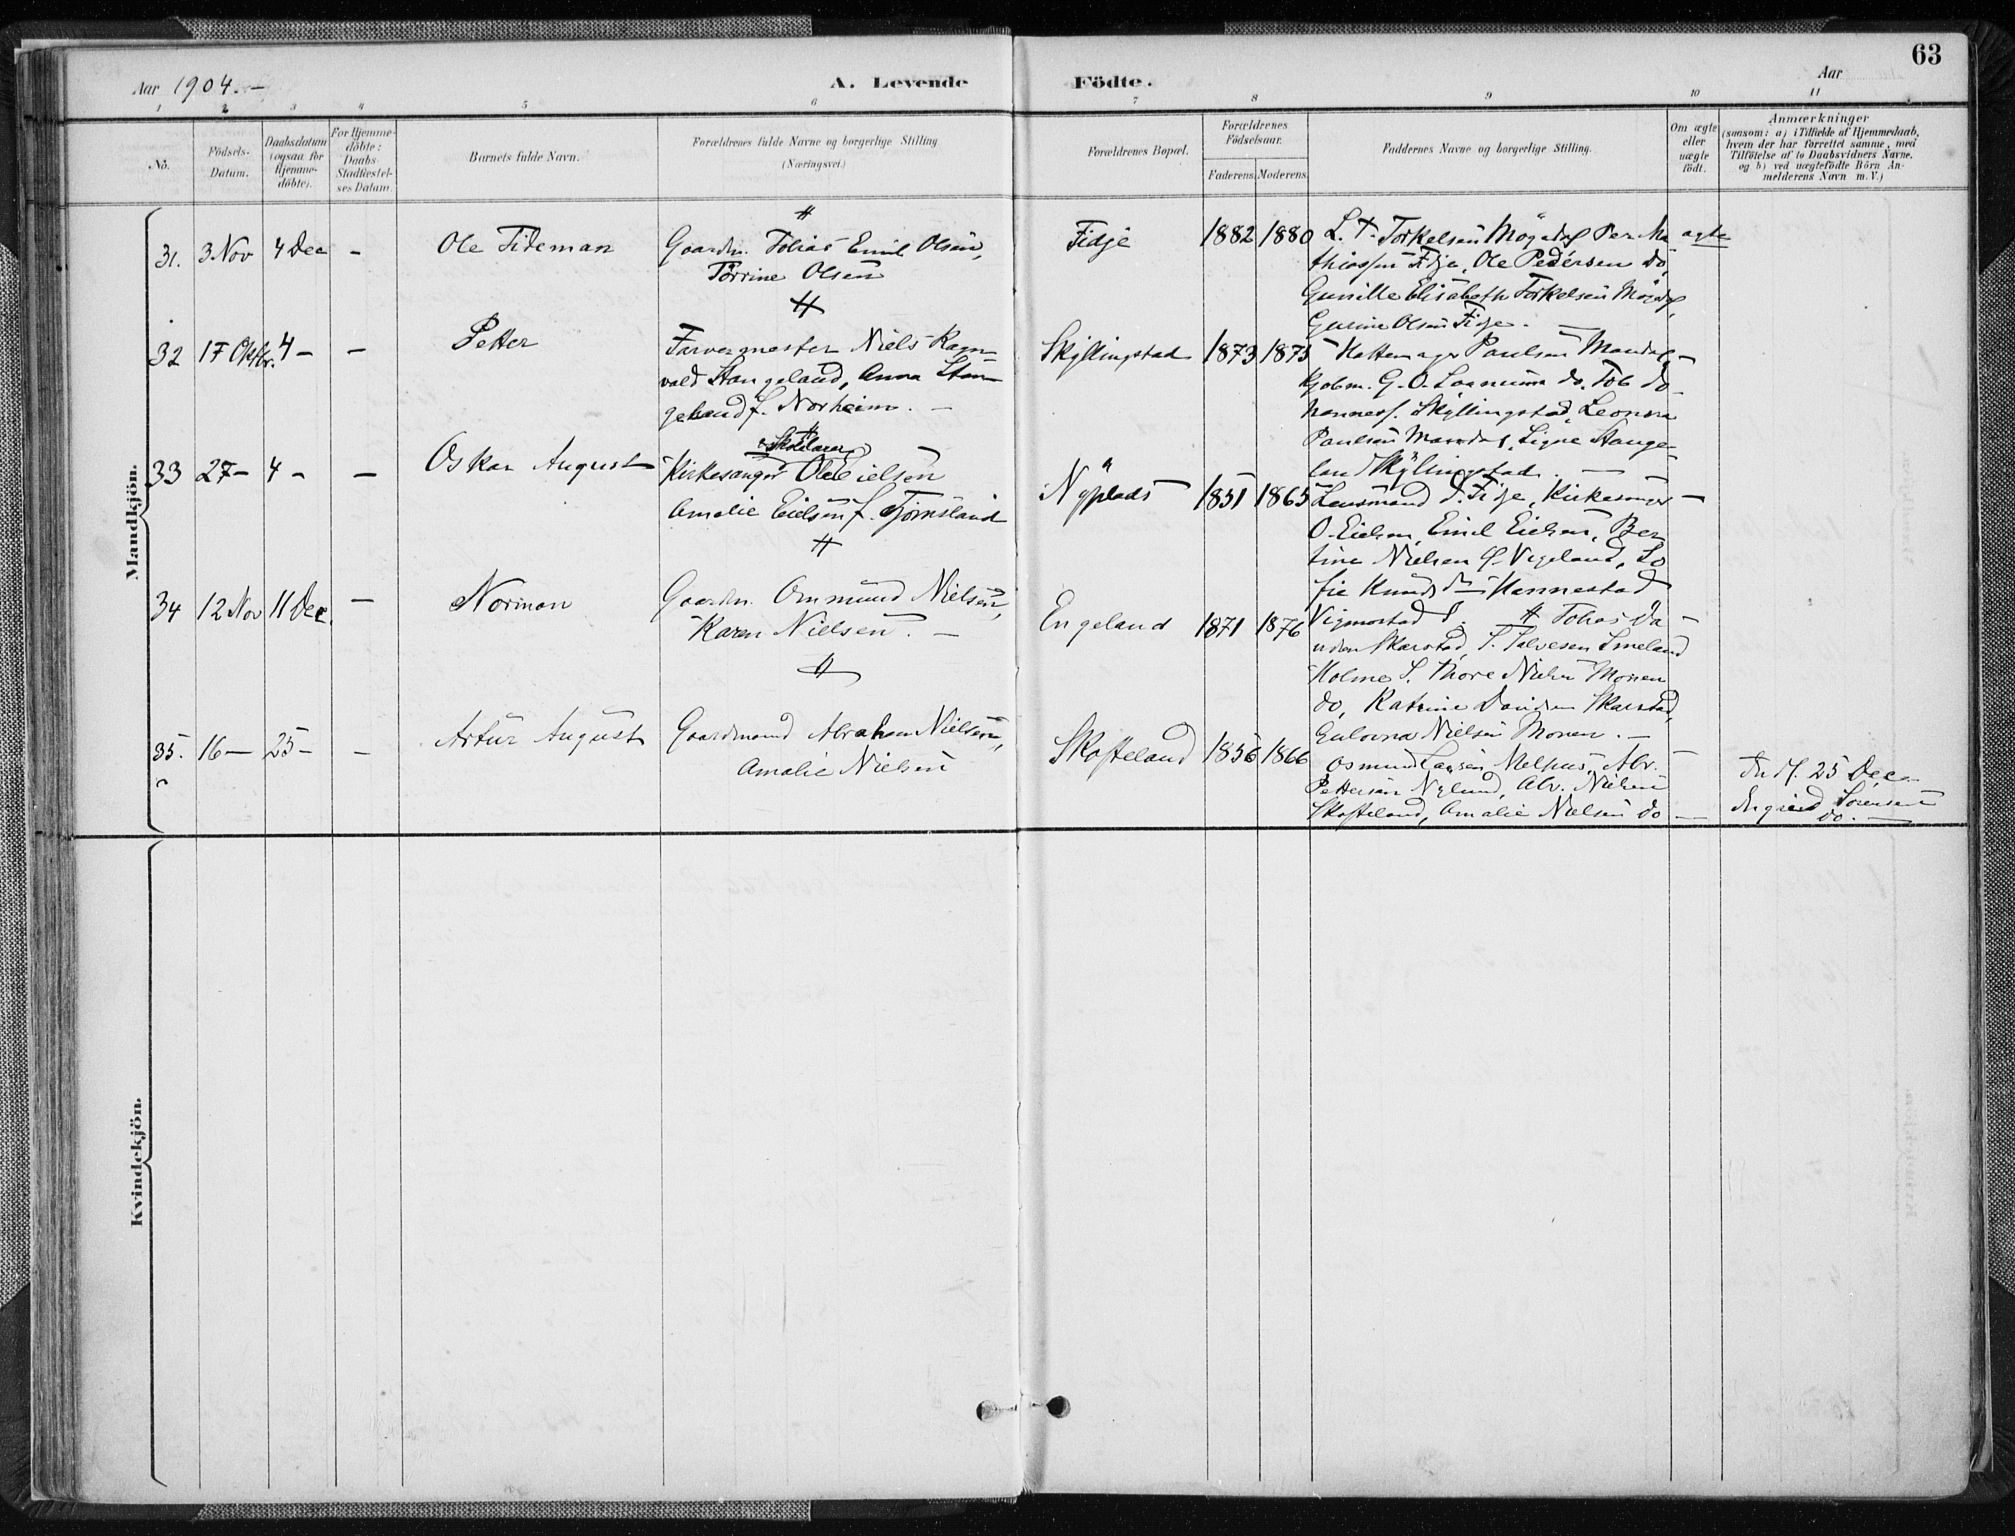 63
Aar 1904.-
A. Levende Fødte.
Aar
1 2 3 4 5 6 7 8 9 10 11
No.
Födsels-
Datum.
Daabsdatum
(ogsaa for
Hjemme-
döbte).
For Hjemme-
döbte:
Daabs-
Stadfæstel-
ses Datum.
Barnets fulde Navn.
Forældrenes fulde Navne og borgerlige Stilling
(Næringsvei.)
Forældrenes Bopæl.
Forældrenes
Födselsaar.
Faderens. Moderens.
Faddernes Navne og borgerlige Stilling.
Om ægte
eller
uægte
födt.
Anmærkninger
(saasom: a) i Tilfælde af Hjemmedaab,
hvem der har forrettet samme, med
Tilföielse af to Daabsvidners Navne,
og b) ved uægtefödte Börn An-
melderens Navn m. V.)
Mandkjön.
31. 3 Nov 4 Dec - Ole Tideman
Gaardm. Tobias Emil Olsen,
Torrine Olsen
Fidje 1882 1880
L. T. Torkelsen Möydal Per Ma
thiassen Fidje, Ole Pedersen do,
Gunille Elisabeth Torkelsen
Gurine Olsen Fidje. -
ægte
32 17 4 - - Petter
Farvermester Niels Ragn-
vald Stangeland, Anna Stan
geland f. Norheim. -
Skyllingstad 1873 1873
Hattemager Paulsen Mandal -
Kjøbm. G. O. do. Tob Jo
hanness. Skyllingstad, Leonora
Paulsen Mandal, Signe Stange-
land Skyllingstad. -
33 27 - 4 - - Oskar August
Skolelærer
Kirkesanger Ole Eielsen
Amalie Eielsen f. Tjomsland
Nyplads 1851 1865
Lensmand Fidje, Kirkesanger -
O. Eielsen, Emil Eielsen, Ber
tine Nielsen Vigeland, So
fie Hannestad
34 12 Nov 11 Dec. - Norman
Gaardm. Omund Nielsen,
Karen Nielsen. -
Engeland 1871 1876
Vigmostad S. Tobias Da -
Skarstad, S. Salvesen
Holme S. Thore Nielsen Monen
do, Katrine Skarstad,
Nielsen Monen. -
35. 16 - 25 - - Artur August
Gaardmand Abraham Nielsen,
Amalie Nielsen
Skofteland 1856 1866
Osmund Melhus, Abr.
Pettersen Nylund, Abr. Nielsen
Skofteland, Amalie Nielsen do -
25 Dec
Sörensen
do. -
Kvindekjön.